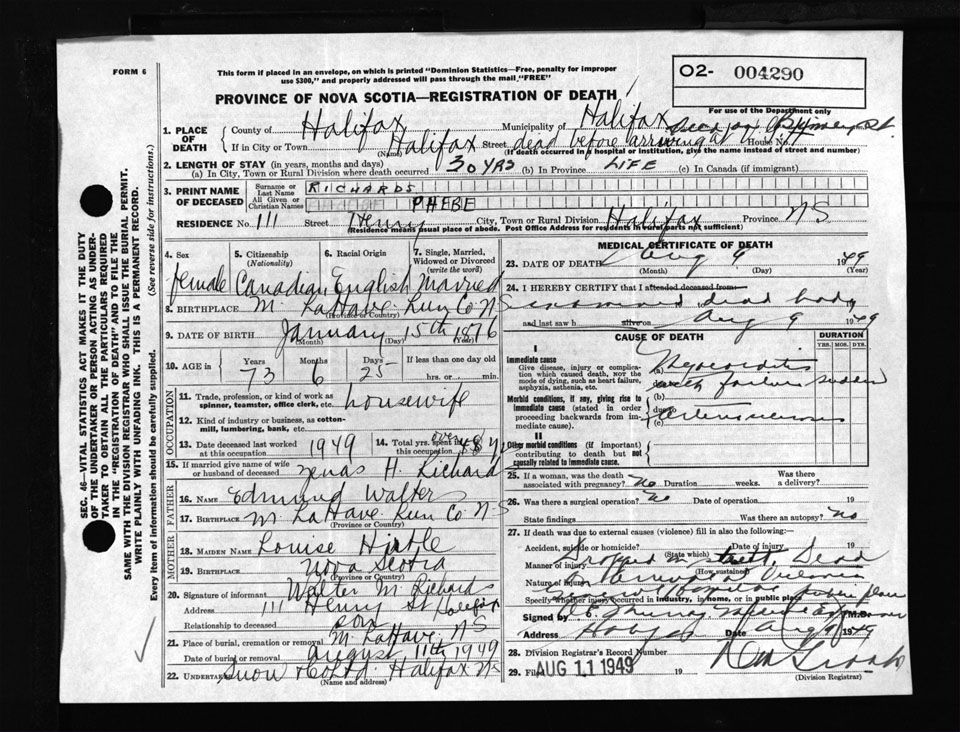 FORM 6
This form if placed in an envelope, on which is printed "Dominion Statistics—Free, penalty for improper
use $300," and properly addressed will pass through the mail "FREE"
O2- 004290
For use of the Department only
PROVINCE OF NOVA SCOTIA—REGISTRATION OF DEATH
1. PLACE OF DEATH
County of Halifax Municipality of Halifax
If in City or Town Halifax Street dead before arriving at House No.
(Name) (If death occurred in a hospital or institution, give the name instead of street and number)
2. LENGTH OF STAY (in years, months and days)
(a) In City, Town or Rural Division where death occurred 30 YRS (b) In Province LIFE (c) In Canada (if immigrant)
3. PRINT NAME OF DECEASED
Surname or Last Name RICHARDS
All Given or Christian Names PHEBE
RESIDENCE No. 111 Street Henry City, Town or Rural Division Halifax Province N S
(Residence means usual place of abode. Post Office Address for residents in rural parts not sufficient)
4. Sex 5. Citizenship (Nationality) 6. Racial Origin 7. Single, Married, Widowed or Divorced (write the word)
female Canadian English Married
8. BIRTHPLACE M. LaHave Lun Co. N S
(Province or Country)
9. DATE OF BIRTH January 15th 1876
(Month) (Day) (Year)
10. AGE in Years Months Days If less than one day old
73 6 25 hrs. or min.
OCCUPATION
11. Trade, profession, or kind of work as spinner, teamster, office clerk, etc. housewife
12. Kind of industry or business, as cotton-mill, lumbering, bank, etc.
13. Date deceased last worked at this occupation 1949 14. Total yrs. spent in this occupation over 48 y
15. If married give name of wife or husband of deceased Zenas H. Richards
FATHER
16. NAME Edmund Walters
17. BIRTHPLACE M. LaHave Lun Co N S
(Province or Country)
MOTHER
18. MAIDEN NAME Louise Hirtle
19. BIRTHPLACE Nova Scotia
(Province or Country)
20. Signature of informant Walter M. Richards
Address 111 Henry St Halifax
Relationship to deceased son
21. Place of burial, cremation or removal M. LaHave, N S
Date of burial or removal August 11th 1949
22. Undertaker Snow & Co Ltd. Halifax N S
(Name and address)
MEDICAL CERTIFICATE OF DEATH
23. DATE OF DEATH Aug 9 1949
(Month) (Day) (Year)
24. I HEREBY CERTIFY that I attended deceased from
examined dead body
and last saw h alive on Aug 9 1949
CAUSE OF DEATH DURATION
YRS. MOS. DYS.
I
Immediate cause
Give disease, injury or complication which caused death, NOT the mode of dying, such as heart failure, asphyxia, asthenia, etc.
(a) Myocarditis
with failure sudden
(b)
Morbid conditions, if any, giving rise to immediate cause (stated in order proceeding backwards from immediate cause).
due to
(c)
II
Other morbid conditions (if important) contributing to death but not causally related to immediate cause.
25. If a woman, was the death associated with pregnancy? No Duration weeks. Was there a delivery?
26. Was there a surgical operation? No Date of operation 19
State findings Was there an autopsy? No
27. If death was due to external causes (violence) fill in also the following:
Accident, suicide or homicide? Date of injury 19
(State which)
Manner of injury Dropped in street. Dead
(How sustained)
Nature of injury
Specify whether injury occurred in industry, in home, or in public place public place
Signed by M.D.
Address Date Aug 9 1949
28. Division Registrar's Record Number
29. Filed AUG 11 1949
(Division Registrar)
SEC. 46—VITAL STATISTICS ACT MAKES IT THE DUTY
OF THE UNDERTAKER OR PERSON ACTING AS UNDER-
TAKER TO OBTAIN ALL THE PARTICULARS REQUIRED
IN THE "REGISTRATION OF DEATH" AND TO FILE THE
SAME WITH THE DIVISION REGISTRAR WHO SHALL ISSUE THE BURIAL PERMIT.
WRITE PLAINLY WITH UNFADING INK. THIS IS A PERMANENT RECORD.
Every item of information should be carefully supplied. (See reverse side for instructions.)